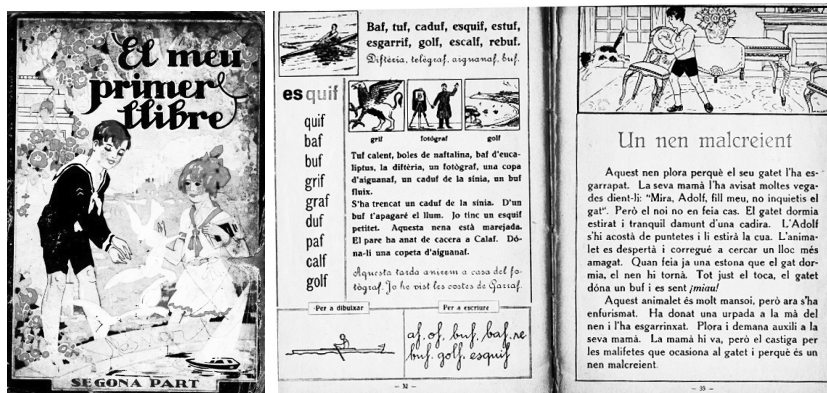 El meu
primer
llibre
SEGONA PART
Baf, tuf, caduf, esquif, estuf,
esgarrif, golf, escalf, rebuf.
Diftèria, telègraf, aiguanaf, buf.
esquif
quif
baf
buf
grif
graf
duf
paf
calf
golf
grif fotògraf golf
Tuf calent, boles de naftalina, baf d'euca-
liptus, la diftèria, un fotògraf, una copa
d'aiguanaf, un caduf de la sínia, un buf
fluix.
S'ha trencat un caduf de la sínia. D'un
buf t'apagaré el llum. Jo tinc un esquif
petitet. Aquesta nena está marejada.
El pare ha anat de cacera a Calaf. Dó-
na-li una copeta d'aiguanaf.
Aquesta tarda anirem a casa del fo-
tògraf. Jo he vist les costes de Garraf.
Per a dibuixar
Per a escriure
af. of. buf. baf. ne
buf. golf. esquif
— 32 —
Un nen malcreient
Aquest nen plora perquè el seu gatet l'ha es-
garrapat. La seva mamà l'ha avisat moltes vega-
des dient-li: "Mira, Adolf, fill meu, no inquietis el
gat". Però el noi no en feia cas. El gatet dormia
estirat i tranquil damunt d'una cadira. L'Adolf
s'hi acostà de puntetes i li estirà la cua. L'anima-
let es despertà i corregué a cercar un lloc més
amagat. Quan feia ja una estona que el gat dor-
mia, el nen hi tornà. Tot just el toca, el gatet
dóna un buf i es sent ¡miau!
Aquest animalet és molt mansoi, però ara s'ha
enfurismat. Ha donat una urpada a la mà del
nen i l'ha esgarrinxat. Plora i demana auxili a la
seva mamà. La mamà hi va, però el castiga per
les malifetes que ocasiona al gatet i perquè és un
nen malcreient.
— 33 —